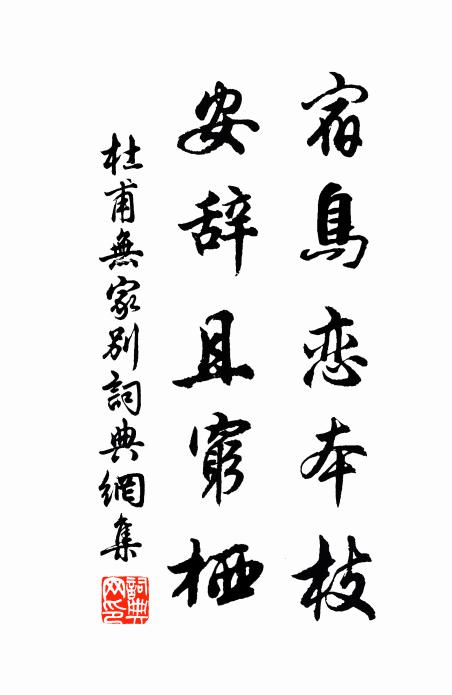 宿鳥恋本枝
安辞且窮栖
杜甫無家別詞典網集
詞典網印